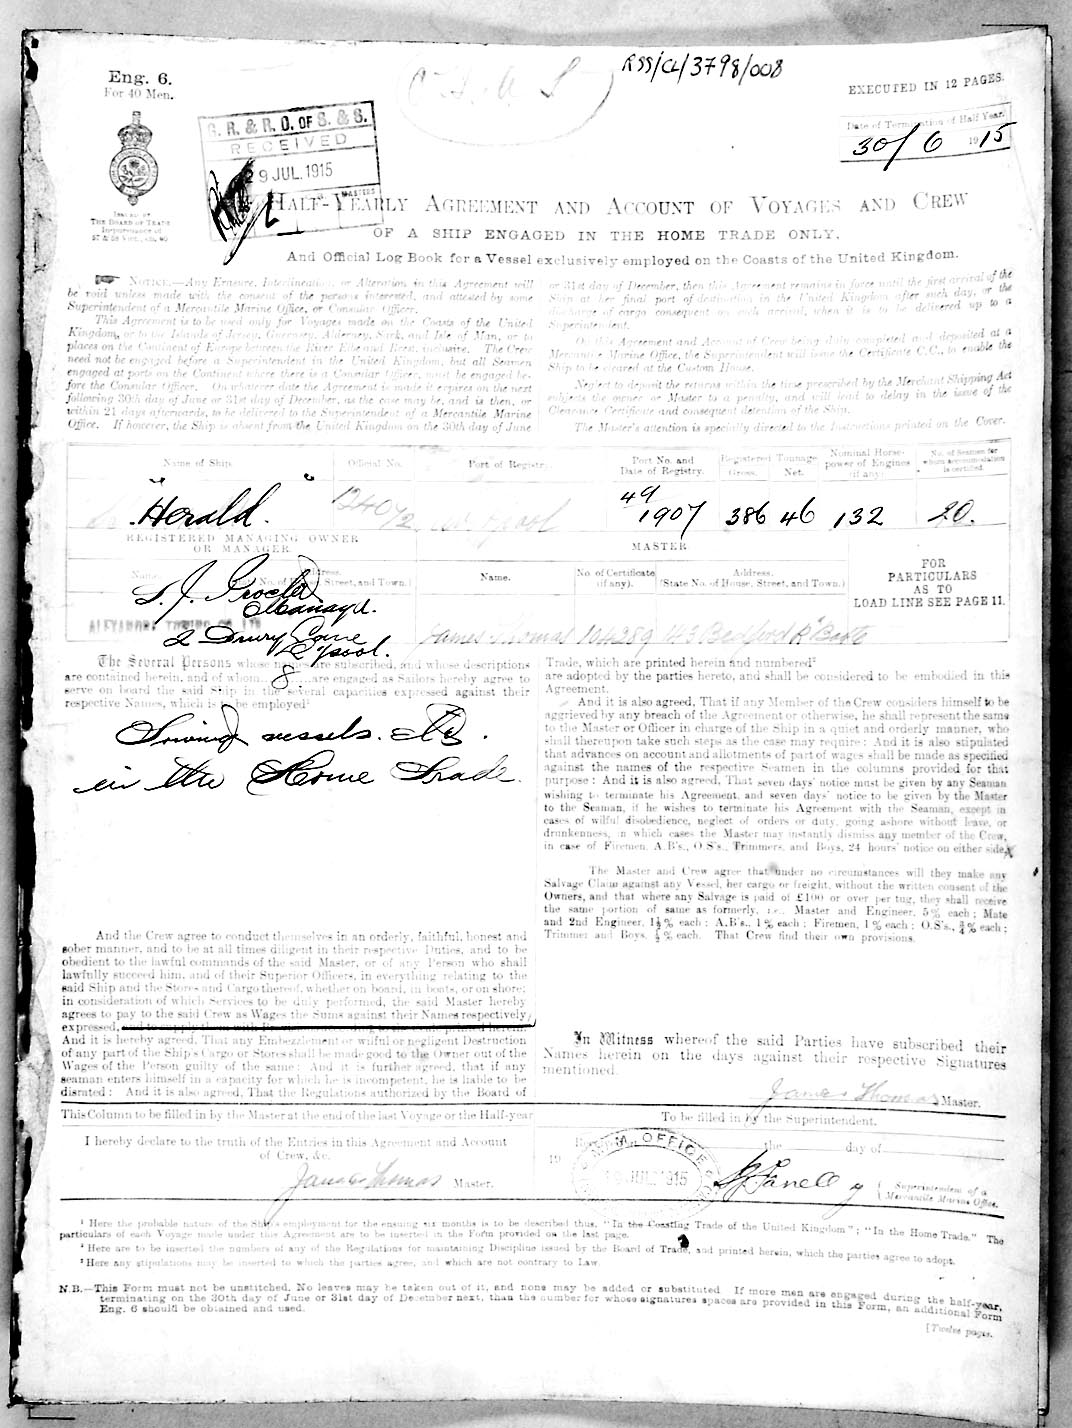 Eng. 6.
For 40 Men.
RSS/CL/3798/008
EXECUTED IN 12 PAGES.
Date of Termination of Half Year
30/6 1915
G. R. & R. O. OF S. & S.
RECEIVED
29 JUL. 1915
MASTERS
ISSUED BY
THE BOARD OF TRADE
In pursuance of
57 & 58 VICT., ch. 60
HALF-YEARLY AGREEMENT AND ACCOUNT OF VOYAGES AND CREW
OF A SHIP ENGAGED IN THE HOME TRADE ONLY,
And Official Log Book for a Vessel exclusively employed on the Coasts of the United Kingdom.
NOTICE.—Any Erasure, Interlineation, or Alteration in this Agreement will
be void unless made with the consent of the persons interested, and attested by some
Superintendent of a Mercantile Marine Office, or Consular Officer.
This Agreement is to be used only for Voyages made on the Coasts of the United
Kingdom, or to the Islands of Jersey, Guernsey, Alderney, Sark, and Isle of Man, or to
places on the Continent of Europe between the River Elbe and Brest, inclusive. The Crew
need not be engaged before a Superintendent in the United Kingdom, but all Seamen
engaged at ports on the Continent where there is a Consular Officer, must be engaged be-
fore the Consular Officer. On whatever date the Agreement is made it expires on the next
following 30th day of June or 31st day of December, as the case may be, and is then, or
within 21 days afterwards, to be delivered to the Superintendent of a Mercantile Marine
Office. If however, the Ship is absent from the United Kingdom on the 30th day of June
or 31st day of December, then this Agreement remains in force until the first arrival of the
Ship at her final port of destination in the United Kingdom after such day, or the
discharge of cargo consequent on such arrival, when it is to be delivered up to a
Superintendent.
On this Agreement and Account of Crew being duly completed and deposited at a
Mercantile Marine Office, the Superintendent will issue the Certificate C.C., to enable the
Ship to be cleared at the Custom House.
Neglect to deposit the returns within the time prescribed by the Merchant Shipping Act
subjects the owner or Master to a penalty, and will lead to delay in the issue of the
Clearance Certificate and consequent detention of the Ship.
The Master's attention is specially directed to the Instructions printed on the Cover.
Name of Ship. Official No. Port of Registry. Port No. and Date of Registry. Registered Tonnage Gross. Net. Nominal Horse-power of Engines (if any). No. of Seamen for whom accommodation is certified.
"Herald." 124072 Liverpool 49/1907 386 46 132 20.
REGISTERED MANAGING OWNER
OR MANAGER.
MASTER
Name. Address.
(State No. of House, Street, and Town.)
Name. No. of Certificate (if any). Address. (State No. of House, Street, and Town.)
FOR
PARTICULARS
AS TO
LOAD LINE SEE PAGE 11.
Manager.
ALEXANDRA TOWING CO. LTD
2 Drury Lane
L'pool.
James Thomas 104289 143 Bedford Rd Bootle
The Several Persons whose names are subscribed, and whose descriptions
are contained herein, and of whom 8 are engaged as Sailors hereby agree to
serve on board the said Ship in the several capacities expressed against their
respective Names, which is to be employed¹
Towing vessels. Etc.
in the Home Trade.
And the Crew agree to conduct themselves in an orderly, faithful, honest and
sober manner, and to be at all times diligent in their respective Duties, and to be
obedient to the lawful commands of the said Master, or of any Person who shall
lawfully succeed him, and of their Superior Officers, in everything relating to the
said Ship and the Stores and Cargo thereof, whether on board, in boats, or on shore;
in consideration of which Services to be duly performed, the said Master hereby
agrees to pay to the said Crew as Wages the Sums against their Names respectively
expressed,
And it is hereby agreed, That any Embezzlement or wilful or negligent Destruction
of any part of the Ship's Cargo or Stores shall be made good to the Owner out of the
Wages of the Person guilty of the same: And it is further agreed, that if any
seaman enters himself in a capacity for which he is incompetent, he is liable to be
disrated: And it is also agreed, That the Regulations authorized by the Board of
Trade, which are printed herein and numbered²
are adopted by the parties hereto, and shall be considered to be embodied in this
Agreement.
And it is also agreed, That if any Member of the Crew considers himself to be
aggrieved by any breach of the Agreement or otherwise, he shall represent the same
to the Master or Officer in charge of the Ship in a quiet and orderly manner, who
shall thereupon take such steps as the case may require: And it is also stipulated
that advances on account and allotments of part of wages shall be made as specified
against the names of the respective Seamen in the columns provided for that
purpose: And it is also agreed, That seven days' notice must be given by any Seaman
wishing to terminate his Agreement, and seven days' notice to be given by the Master
to the Seaman, if he wishes to terminate his Agreement with the Seaman, except in
cases of wilful disobedience, neglect of orders or duty, going ashore without leave, or
drunkenness, in which cases the Master may instantly dismiss any member of the Crew,
in case of Firemen, A.B's., O.S's., Trimmers, and Boys, 24 hours' notice on either side.
The Master and Crew agree that under no circumstances will they make any
Salvage Claim against any Vessel, her cargo or freight, without the written consent of the
Owners, and that where any Salvage is paid of £100 or over per tug, they shall receive
the same portion of same as formerly, i.e., Master and Engineer, 5% each; Mate
and 2nd Engineer, 1½% each; A.B's., 1% each; Firemen, 1% each; O.S's., ¾% each;
Trimmer and Boys, ½% each. That Crew find their own provisions.
In Witness whereof the said Parties have subscribed their
Names herein on the days against their respective Signatures
mentioned.
James Thomas Master.
This Column to be filled in by the Master at the end of the last Voyage or the Half-year
I hereby declare to the truth of the Entries in this Agreement and Account
of Crew, &c.
James Thomas Master.
To be filled in by the Superintendent.
the day of
19
M.M. OFFICE
JUL 1915
Superintendent of a
Mercantile Marine Office.
¹ Here the probable nature of the Ship's employment for the ensuing six months is to be described thus, "In the Coasting Trade of the United Kingdom"; "In the Home Trade." The
particulars of each Voyage made under this Agreement are to be inserted in the Form provided on the last page.
² Here are to be inserted the numbers of any of the Regulations for maintaining Discipline issued by the Board of Trade, and printed herein, which the parties agree to adopt.
³ Here any stipulations may be inserted to which the parties agree, and which are not contrary to Law.
N.B.—This Form must not be unstitched. No leaves may be taken out of it, and none may be added or substituted. If more men are engaged during the half-year,
terminating on the 30th day of June or 31st day of December next, than the number for whose signatures spaces are provided in this Form, an additional Form
Eng. 6 should be obtained and used.
[Twelve pages.